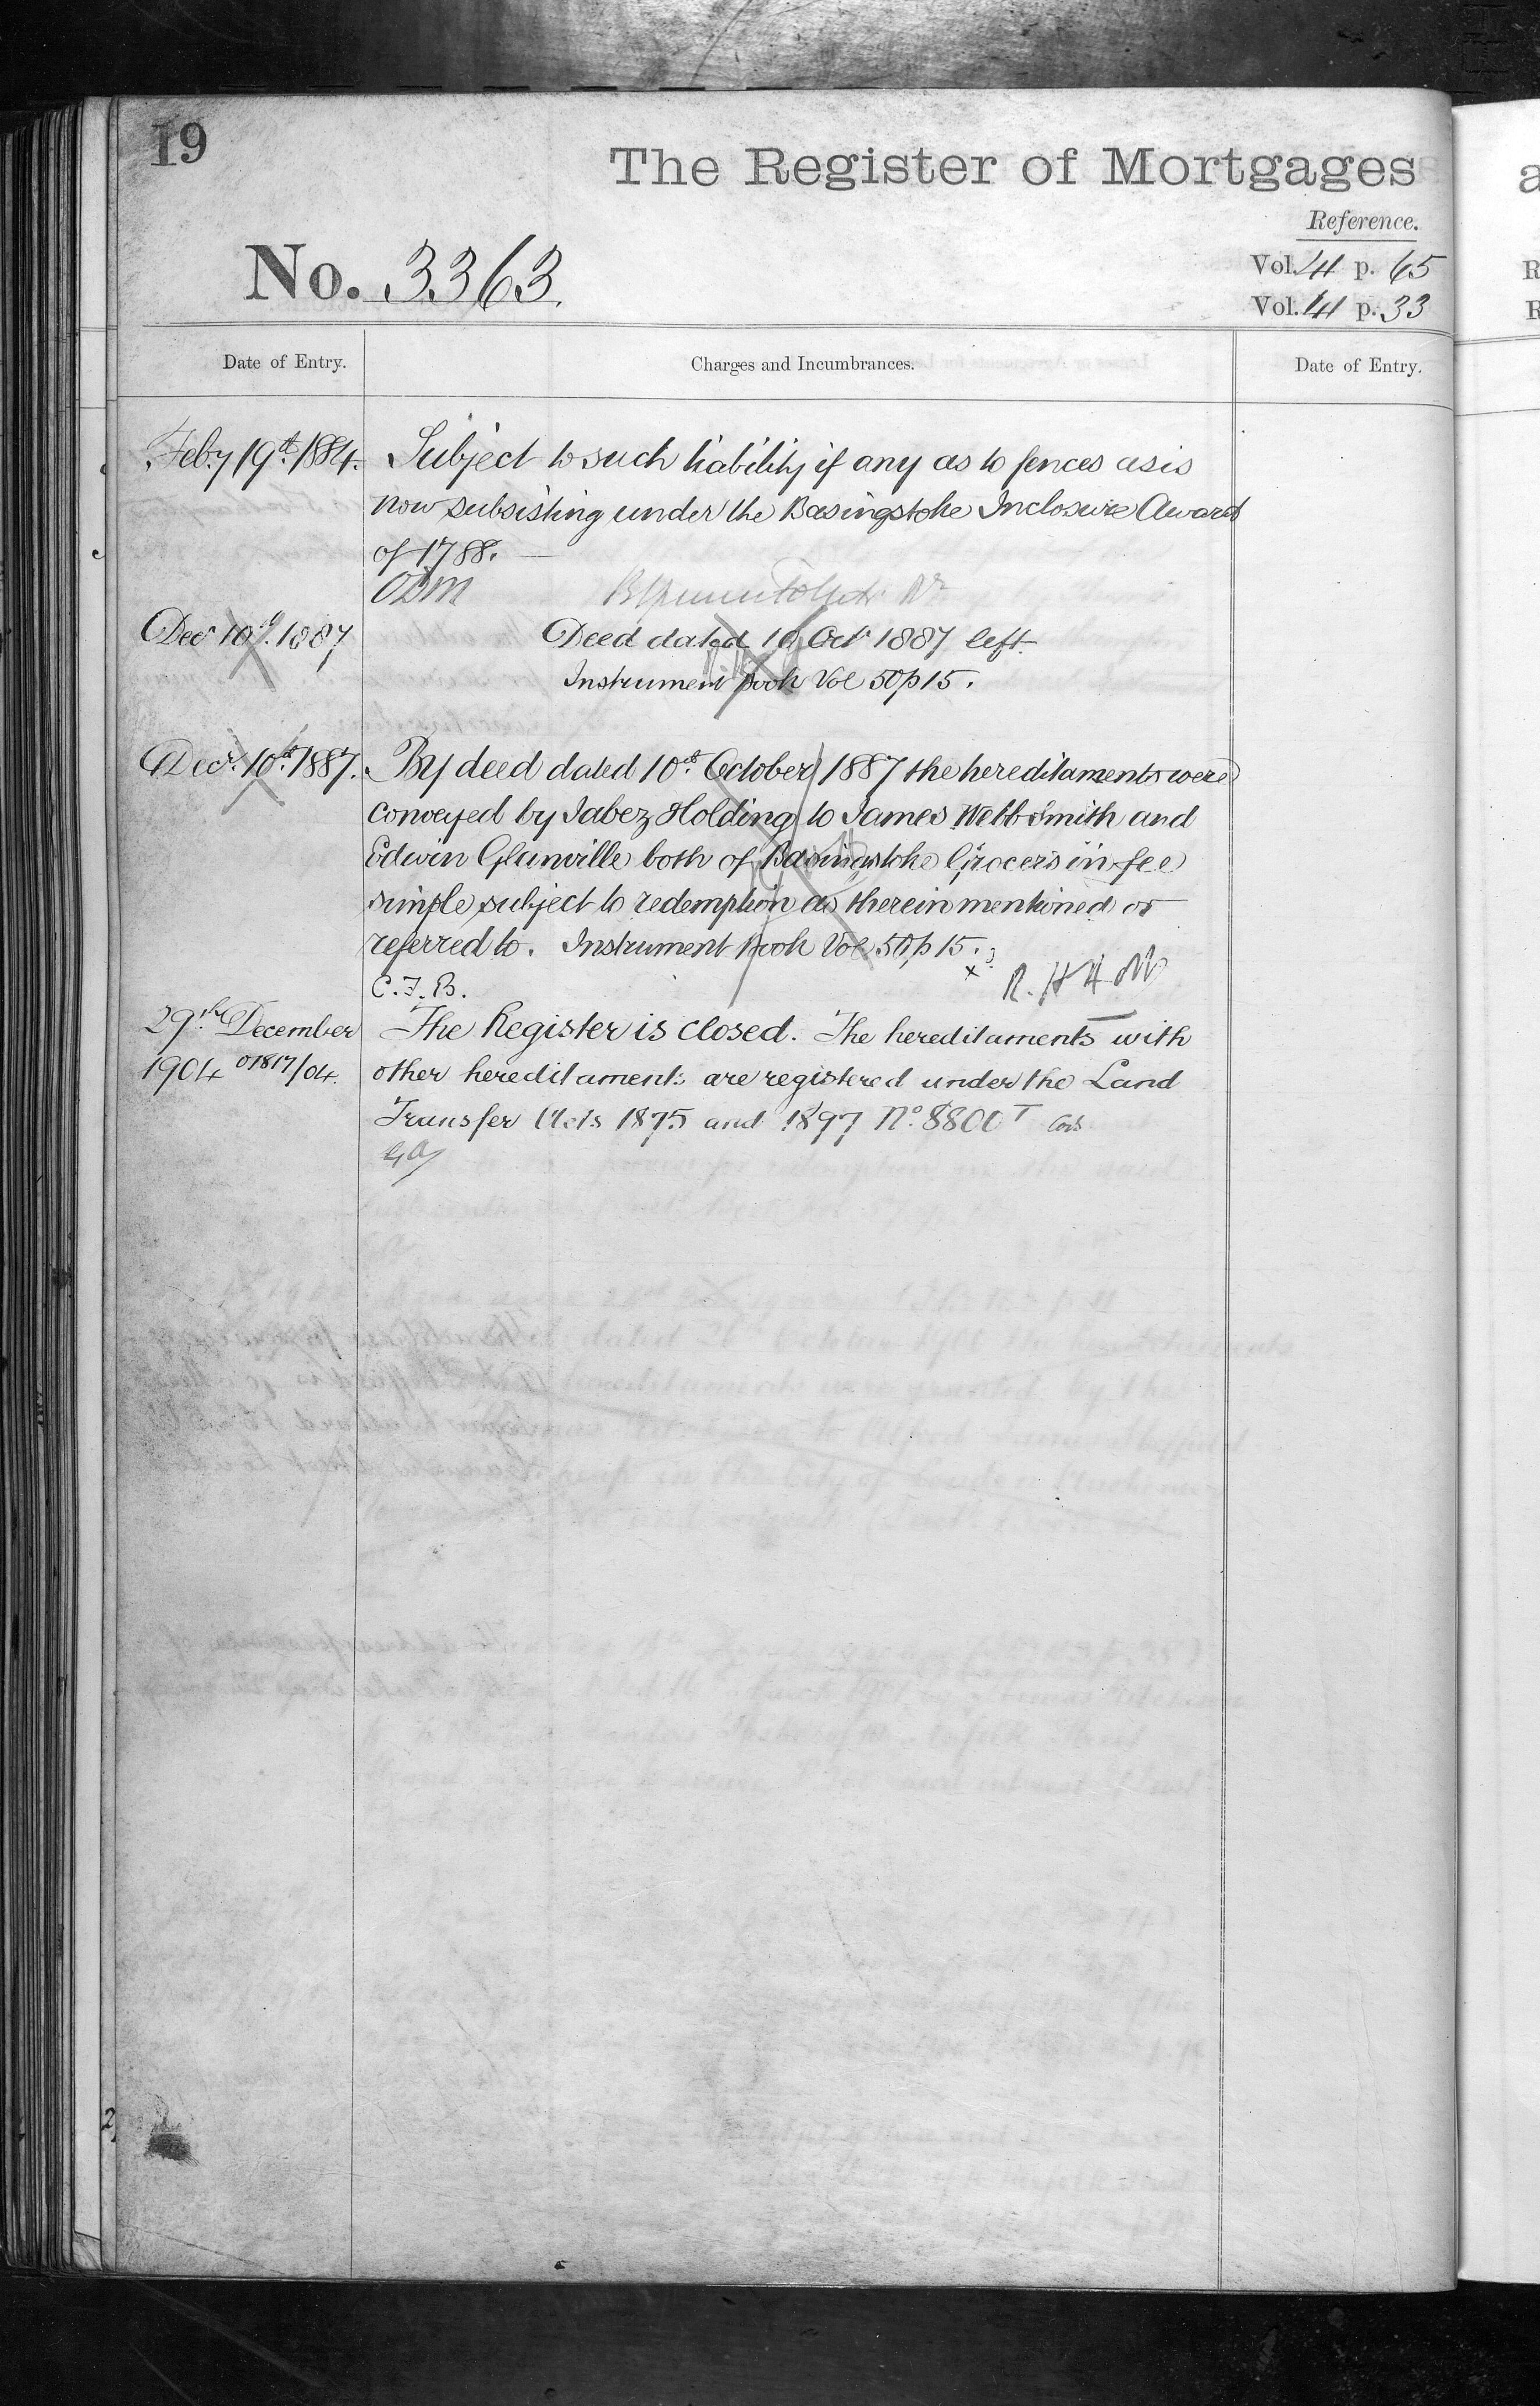 19
The Register of Mortgages
Reference.
No. 3363.
Vol. 4 p. 65
Vol. 4 p. 33
Date of Entry.
Charges and Incumbrances.
Date of Entry.
Feb.y 19th. 1884.
Subject to such liability if any as to fences as is
now subsisting under the Basingstoke Inclosure Award
of 1788.
Decr 10th. 1887
Deed dated 10 Octr 1887 left.
Instrument Book Vol 50 p 15.
Decr. 10th. 1887.
By deed dated 10th. October 1887 the hereditaments were
conveyed by Jabez Holding to James Webb Smith and
Edwin Glanville both of Basingstoke Grocers in fee
simple subject to redemption as therein mentioned or
referred to. Instrument Book Vol 50 p 15.
x
C.F.B.
29th. December
1904 01817/04.
The Register is closed. The hereditaments with
other hereditaments are registered under the Land
Transfer Acts 1875 and 1897 No. 8800